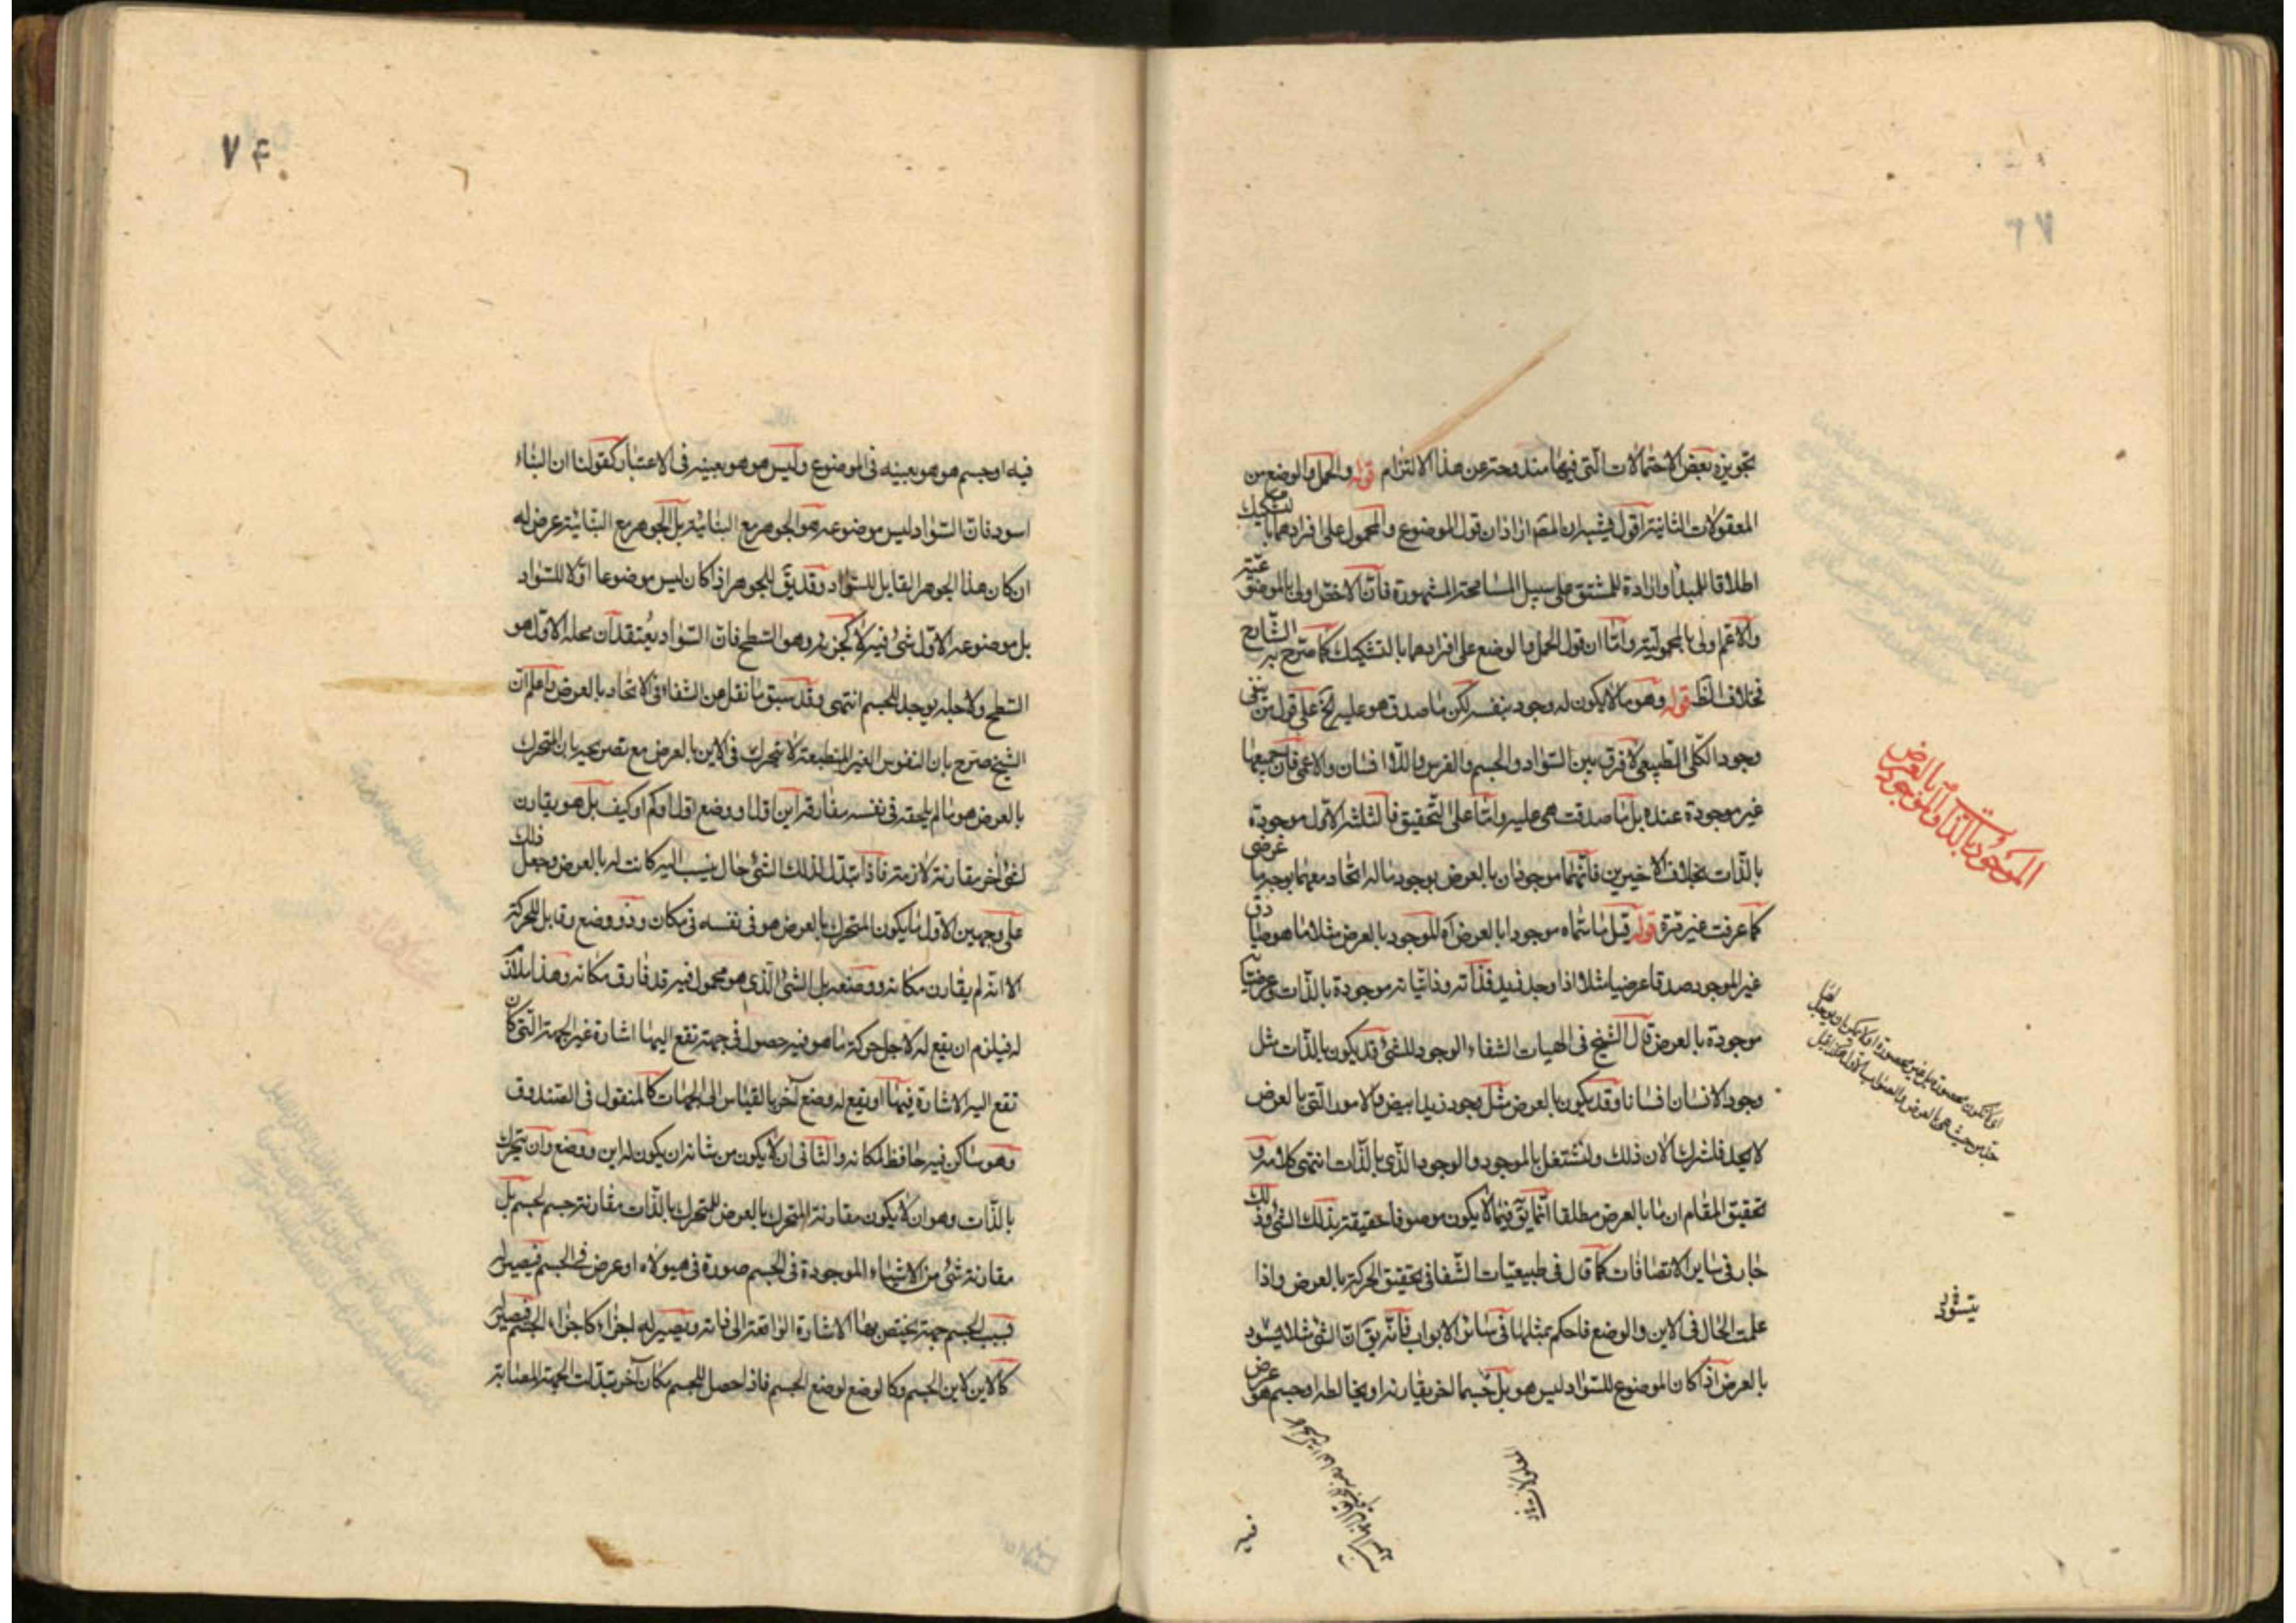 تجويزه بعض الاحتمالات التي فيها مندوحة عن هذا الالتزام قوله والحمل والوضع من
المعقولات الثانية اقول يشبه ان المصم اراد ان قول الموضوع والمحمول على افرادهما بالتشكيك
اطلاقا للمبدأ وارادة للمشتق على سبيل المسامحة المشهورة فان الاخص اولى بالموضوعية
والاعم اولى بالمحمولية واما ان قول الحمل والوضع على افرادهما بالتشكيك كما صرح به الشارح
فخلاف الظ قوله وهو ما لا يكون له وجود بنفسه لكن ما صدق هو عليه آه على قول من ينفى
وجود الكلى الطبيعى لا فرق بين السواد والجسم والفرس واللاانسان والاعمى فان جميعها
غير موجودة عنده بل ما صدقت هى عليه واما على التحقيق فالثلثة الاول موجودة
بالذات بخلاف الاخيرين فانهما موجودان بالعرض بوجود ما له اتحاد معهما بوجه ما عرضى
كما عرفت غير مرة قوله قيل ما سماه موجودا بالعرض آه الموجود بالعرض مثلا ما هو صادق
غير الموجود صدقا عرضيا مثلا اذا وجد زيد فذاته وذاتياته موجودة بالذات وعرضياته
موجودة بالعرض قال الشيخ فى الهيات الشفاء الوجود للشئ قد يكون بالذات مثل
وجود الانسان انسانا وقد يكون بالعرض مثل وجود زيد ابيض والامور التى بالعرض
لا يحد فلنترك الان ذلك ولنشتغل بالموجود والوجود الذى بالذات انتهى كلامه و
تحقيق المقام ان ما بالعرض مطلقا انما يق فيما لا يكون موصوفا حقيقة بذلك الشئ وذلك
جار فى ساير الاتصافات كما قال فى طبيعيات الشفا فى تحقيق الحركة بالعرض واذا
علمت الحال فى الاين والوضع فاحكم بمثلها فى سائر الابواب فانه يق ان الشئ مثلا يسود
بالعرض اذا كان الموضوع للسواد ليس هو بل جسما اخر يقارنه او يخالطه او جسم هو عرض
الموجود بالذات والموجود بالعرض
يتسود
٧٤
فيه او جسم هو هو بعينه فى الموضوع وليس هو هو بعينه فى الاعتبار كقولنا ان البناء
اسود فان السواد ليس موضوعه هو الجوهر مع البنائية بل الجوهر مع البنائية عرض له
ان كان هذا الجوهر القابل للسواد وقد يق للجوهر اذا كان ليس موضوعا اولا للسواد
بل موضوعه الاول شئ فيه لا كجزء به وهو السطح فان السواد يعتقد ان محله الاول هو
السطح ولاجله يوجد للجسم انتهى وقد سبق ما نقل من الشفاء فى الاتحاد بالعرض واعلم ان
الشيخ صرح بان النفوس الغير المنطبعة لا تتحرك فى الاين بالعرض مع تصريحه بان المتحرك
بالعرض هو ما لم يلحقه فى نفسه مفارقة اين اول او وضع اول او كم او كيف بل هو يقارن
لشئ اخر مقارنة لازمة فاذا تبدل لذلك الشئ حال ينسب اليه كانت له بالعرض وجعل ذلك
على وجهين الاول ما يكون المتحرك بالعرض هو فى نفسه فى مكان وذو وضع وقابل للحركة
الا انه لم يفارق مكانه ووضعه بل الشئ الذى هو محمول فيه قد فارق مكانه وهذا ملاق
له فيلزم ان يقع له لاجل حركة ما هو فيه حصول فى جهة تقع اليها اشارة غير الجهة التى كان
تقع اليه الاشارة فيها او يقع له وضع آخر بالقياس الى الجهات كالمنقول فى الصندوق
وهو ساكن فيه حافظ لمكانه والثانى ان لا يكون من شانه ان يكون له اين ووضع وان يتحرك
بالذات وهو ان لا يكون مقارنة المتحرك بالعرض للمتحرك بالذات مقارنة جسم لجسم بل
مقارنة شئ من الاشياء الموجودة فى الجسم صورة فى هيولاه او عرض فى الجسم فيصير له
بسبب الجسم جهة يختص بها الاشارة الواقعة الى ذاته ويصير له اجزاء كاجزاء الجسم فيصير له
كالاين لاين الجسم وكالوضع لوضع الجسم فاذا حصل للجسم مكان آخر تبدلت الجهة المصابة